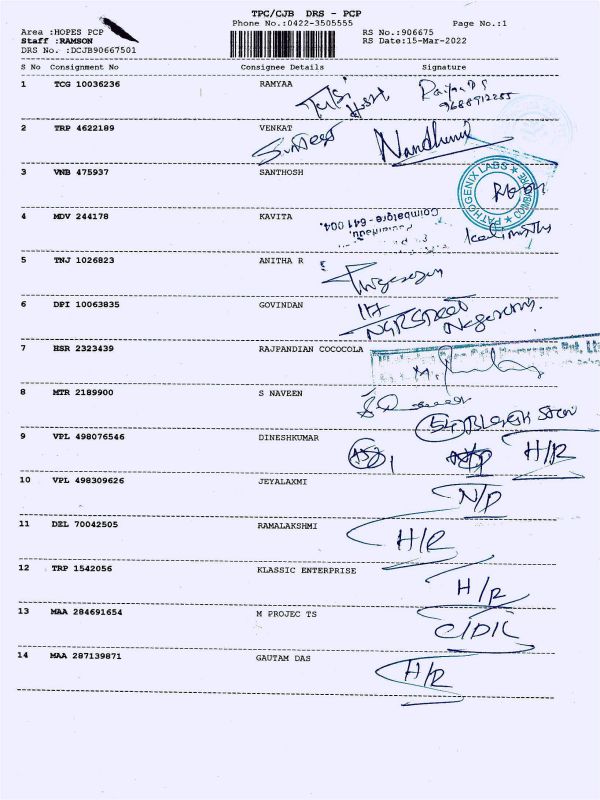 TPC/CJB DRS - PCP
Phone No.:0422-3505555 Page No.:1
Area :HOPES PCP RS No.:906675
Staff :RAMSON RS Date:15-Mar-2022
DRS No. :DCJB90667501
S No Consignment No Consignee Details Signature
1 TCG 10036236 RAMYAA
9688912255
2 TRP 4622189 VENKAT Nandhini
3 VNB 475937 SANTHOSH
PATHOGENIX LABS
4 MDV 244178 KAVITA
Coimbatore - 641 004.
5 TNJ 1026823 ANITHA R
6 DPI 10063835 GOVINDAN
7 HSR 2323439 RAJPANDIAN COCOCOLA
8 MTR 2189900 S NAVEEN
9 VPL 498076546 DINESHKUMAR H/R
10 VPL 498309626 JEYALAXMI N/P
11 DEL 70042505 RAMALAKSHMI H/R
12 TRP 1542056 KLASSIC ENTERPRISE H/R
13 MAA 284691654 M PROJEC TS
14 MAA 287139871 GAUTAM DAS H/R